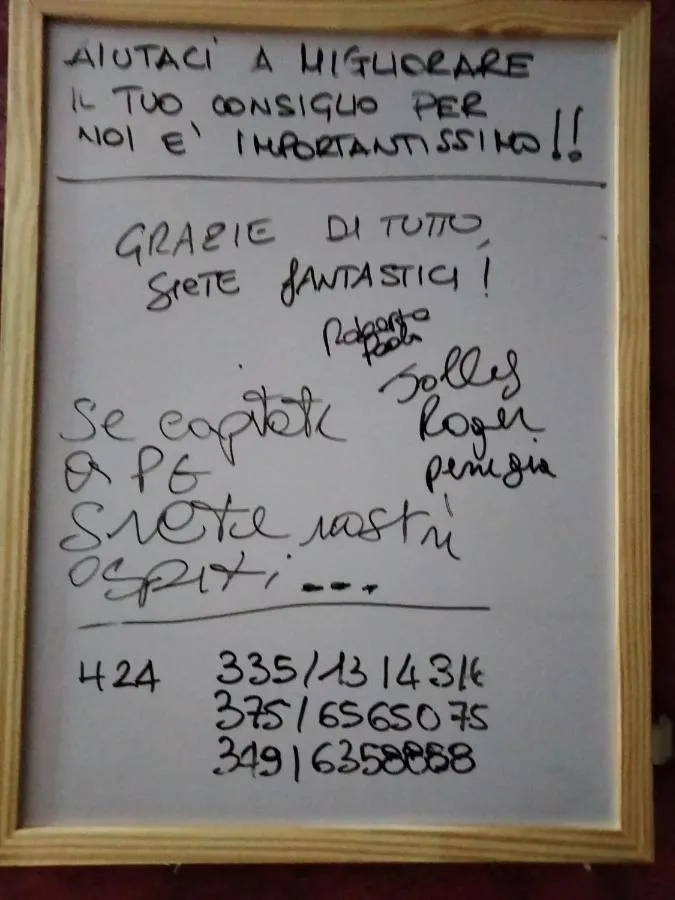 AIUTACI A MIGLIORARE
IL TUO CONSIGLIO PER
NOI E' IMPORTANTISSIMO!!
GRAZIE DI TUTTO,
SIETE FANTASTICI!
Roberto
Paola
Jolly
Roger
perugia
Se capitate
a PG
Siete nostri
ospiti...
424
335/1314316
375/6565075
349/6358868